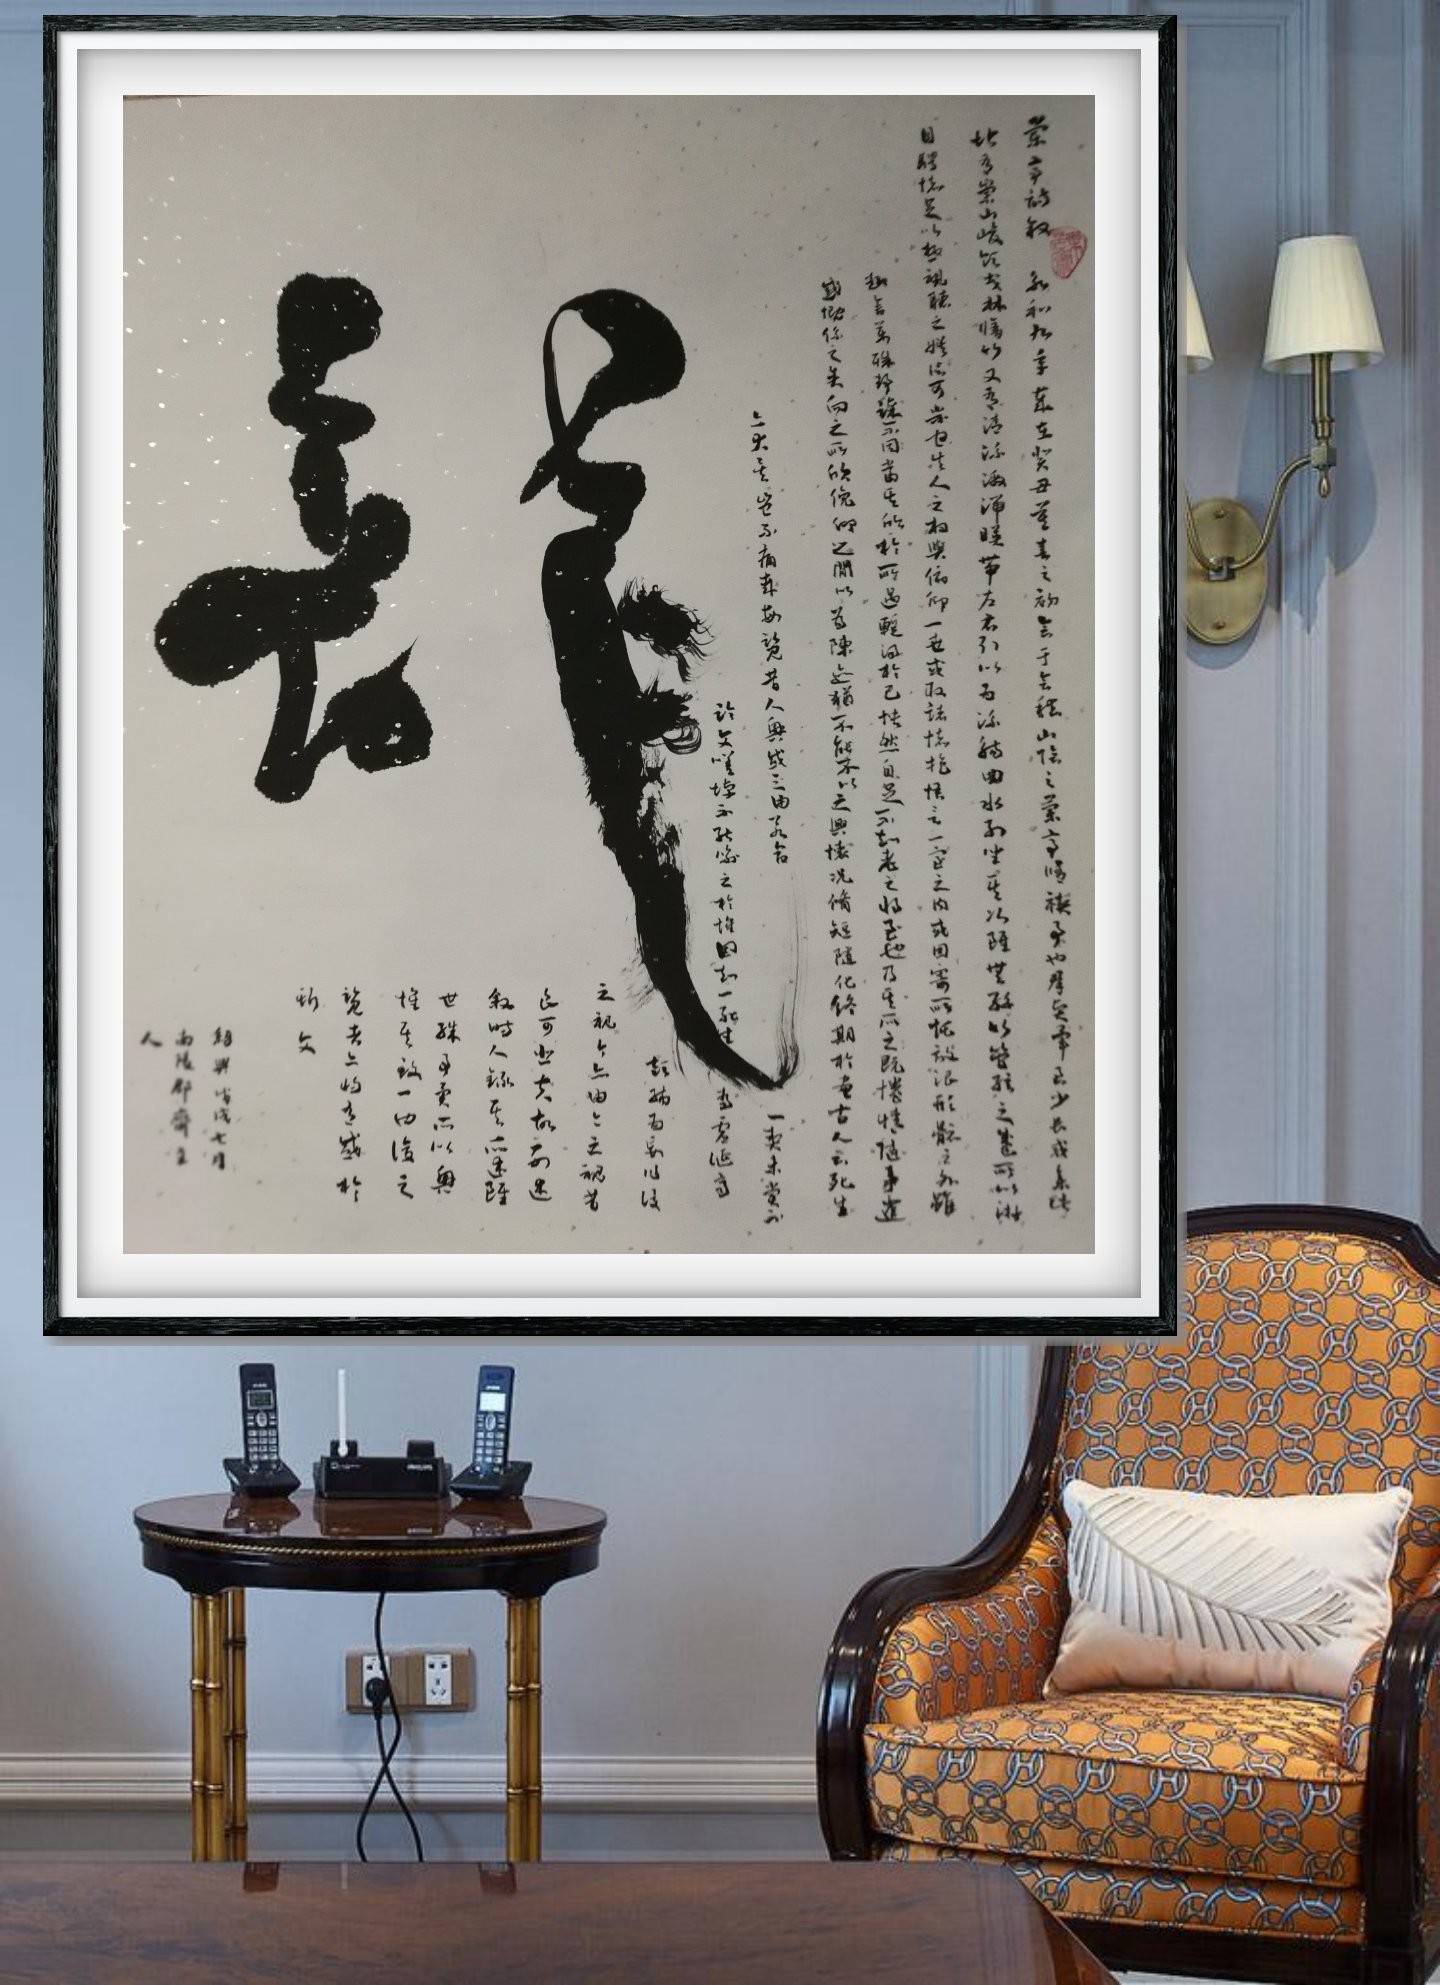 蘭亭詩敘 永和九年歲在癸丑暮春之初會于會稽山陰之蘭亭脩禊事也群賢畢至少長咸集此
地有崇山峻領茂林脩竹又有清流激湍暎帶左右引以為流觴曲水列坐其次雖無絲竹管弦之盛所以游
目騁懷足以極視聽之娛信可樂也夫人之相與俯仰一世或取諸懷抱悟言一室之內或因寄所託放浪形骸之外雖
趣舍萬殊靜躁不同當其欣於所遇輒得於己快然自足不知老之將至也及其所之既惓情隨事遷
感慨係之矣向之所欣俛仰之間以為陳迹猶不能不以之興懷況脩短隨化終期於盡古人云死生
亦大矣豈不痛哉每覽昔人興感之由若合
一契未嘗不
臨文嗟悼不能喻之於懷固知一死生
為虛誕齊
彭殤為妄作後
之視今亦由今之視昔
良可悲夫故
敘時人錄其所述雖
世殊事異所以興
懷其致一也後之
覽者亦將有感於
斯文
紹興戊戌七月
南陵郡齋主
人